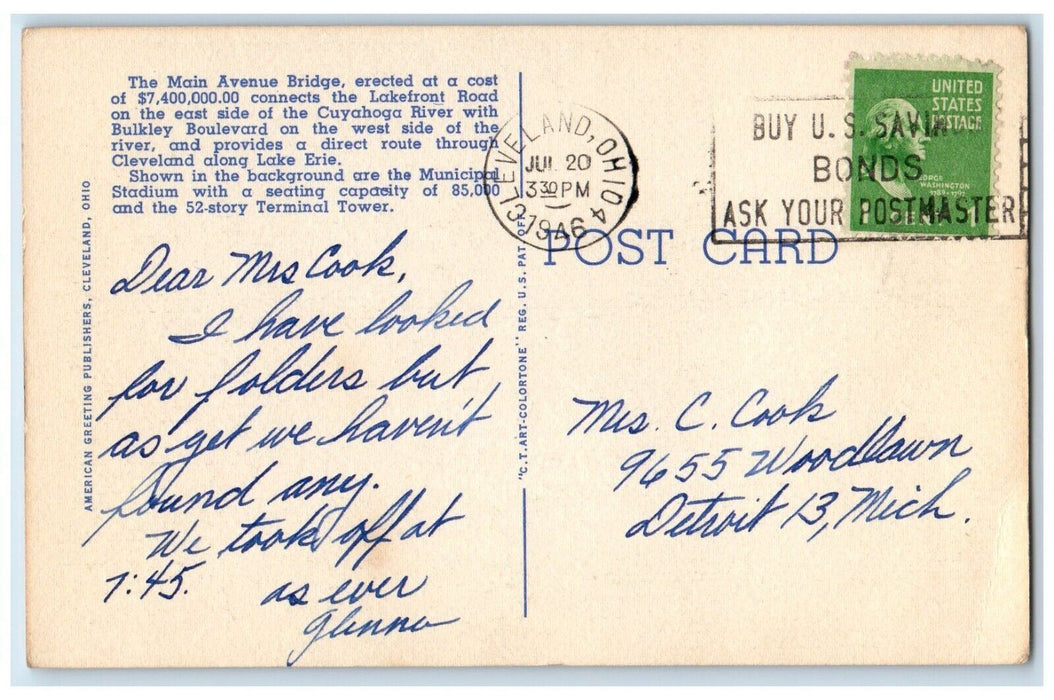 The Main Avenue Bridge, erected at a cost
of $7,400,000.00 connects the Lakefront Road
on the east side of the Cuyahoga River with
Bulkley Boulevard on the west side of the
river, and provides a direct route through
Cleveland along Lake Erie.
Shown in the background are the Municipal
Stadium with a seating capacity of 85,000
and the 52-story Terminal Tower.
AMERICAN GREETING PUBLISHERS, CLEVELAND, OHIO
Dear Mrs Cook,
I have looked
for folders but
as yet we haven't
found any.
We took off at
7:45.
as ever
Glenna
"C.T. ART-COLORTONE" REG. U.S. PAT. OFF.
CLEVELAND, OHIO
JUL 20
3 30 PM
1946
BUY U.S. SAVIN
BONDS
ASK YOUR POSTMASTER
UNITED
STATES
POSTAGE
GEORGE
WASHINGTON
1789-1797
POST CARD
Mrs. C. Cook
9655 Woodlawn
Detroit 13, Mich.